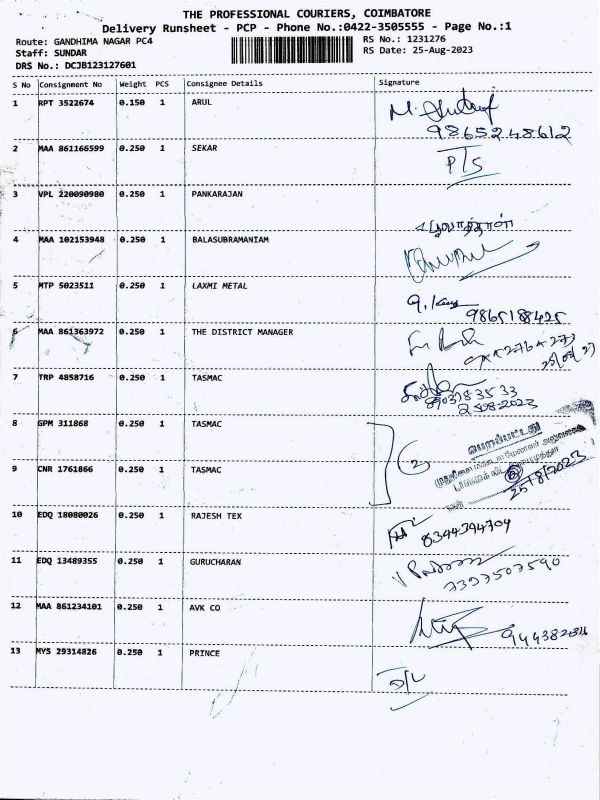 THE PROFESSIONAL COURIERS, COIMBATORE
Delivery Runsheet - PCP - Phone No.:0422-3505555 - Page No.:1
Route: GANDHIMA NAGAR PC4 RS No.: 1231276
Staff: SUNDAR RS Date: 25-Aug-2023
DRS No.: DCJB123127601
S No Consignment No Weight PCS Consignee Details Signature
1 RPT 3522674 0.150 1 ARUL
9865248612
2 MAA 861166599 0.250 1 SEKAR P/S
3 VPL 220090980 0.250 1 PANKARAJAN
4 MAA 102153948 0.250 1 BALASUBRAMANIAM
5 MTP 5023511 0.250 1 LAXMI METAL
9865188425
6 MAA 861363972 0.250 1 THE DISTRICT MANAGER
7 TRP 4858716 0.250 1 TASMAC
8903783533
25-08-2023
8 GPM 311868 0.250 1 TASMAC
பெறப்பட்டது
2
9 CNR 1761866 0.250 1 TASMAC
25/8/2023
10 EDQ 18080026 0.250 1 RAJESH TEX
8344394704
11 EDQ 13489355 0.250 1 GURUCHARAN
7397507590
12 MAA 861234101 0.250 1 AVK CO
13 MYS 29314826 0.250 1 PRINCE